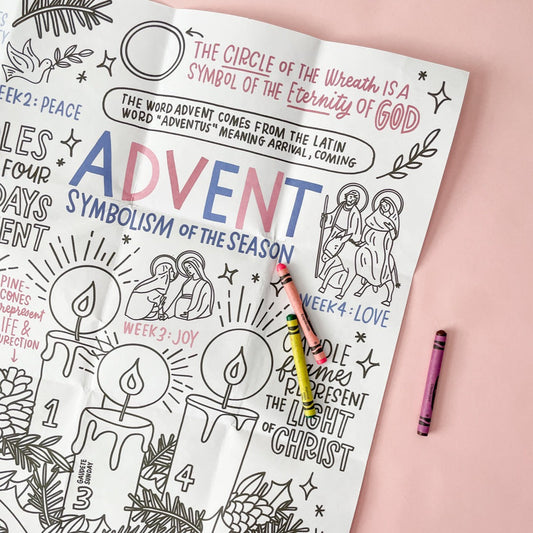 THE CIRCLE OF THE Wreath IS A
SYMBOL OF THE Eternity OF GOD
WEEK 2: PEACE
THE WORD ADVENT COMES FROM THE LATIN
WORD "ADVENTUS" MEANING ARRIVAL, COMING
FOUR
ADVENT
SYMBOLISM OF THE SEASON
PINE-
CONES
represent
LIFE &
WEEK 3: JOY
WEEK 4: LOVE
flames
REPRESENT
THE LIGHT
OF CHRIST
1
3
GAUDETE
SUNDAY
4